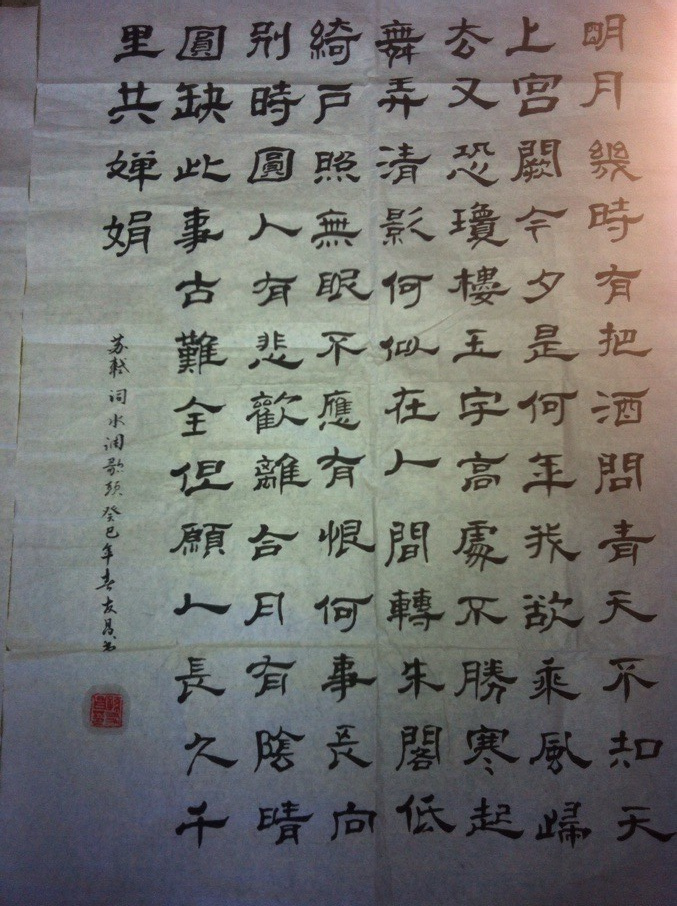 明月幾時有把酒問青天不知天
上宮闕今夕是何年我欲乘風歸
去又恐瓊樓玉宇高處不勝寒起
舞弄清影何似在人間轉朱閣低
綺戶照無眠不應有恨何事長向
別時圓人有悲歡離合月有陰晴
圓缺此事古難全但願人長久千
里共嬋娟
苏軾词水调歌頭癸巳年春友书